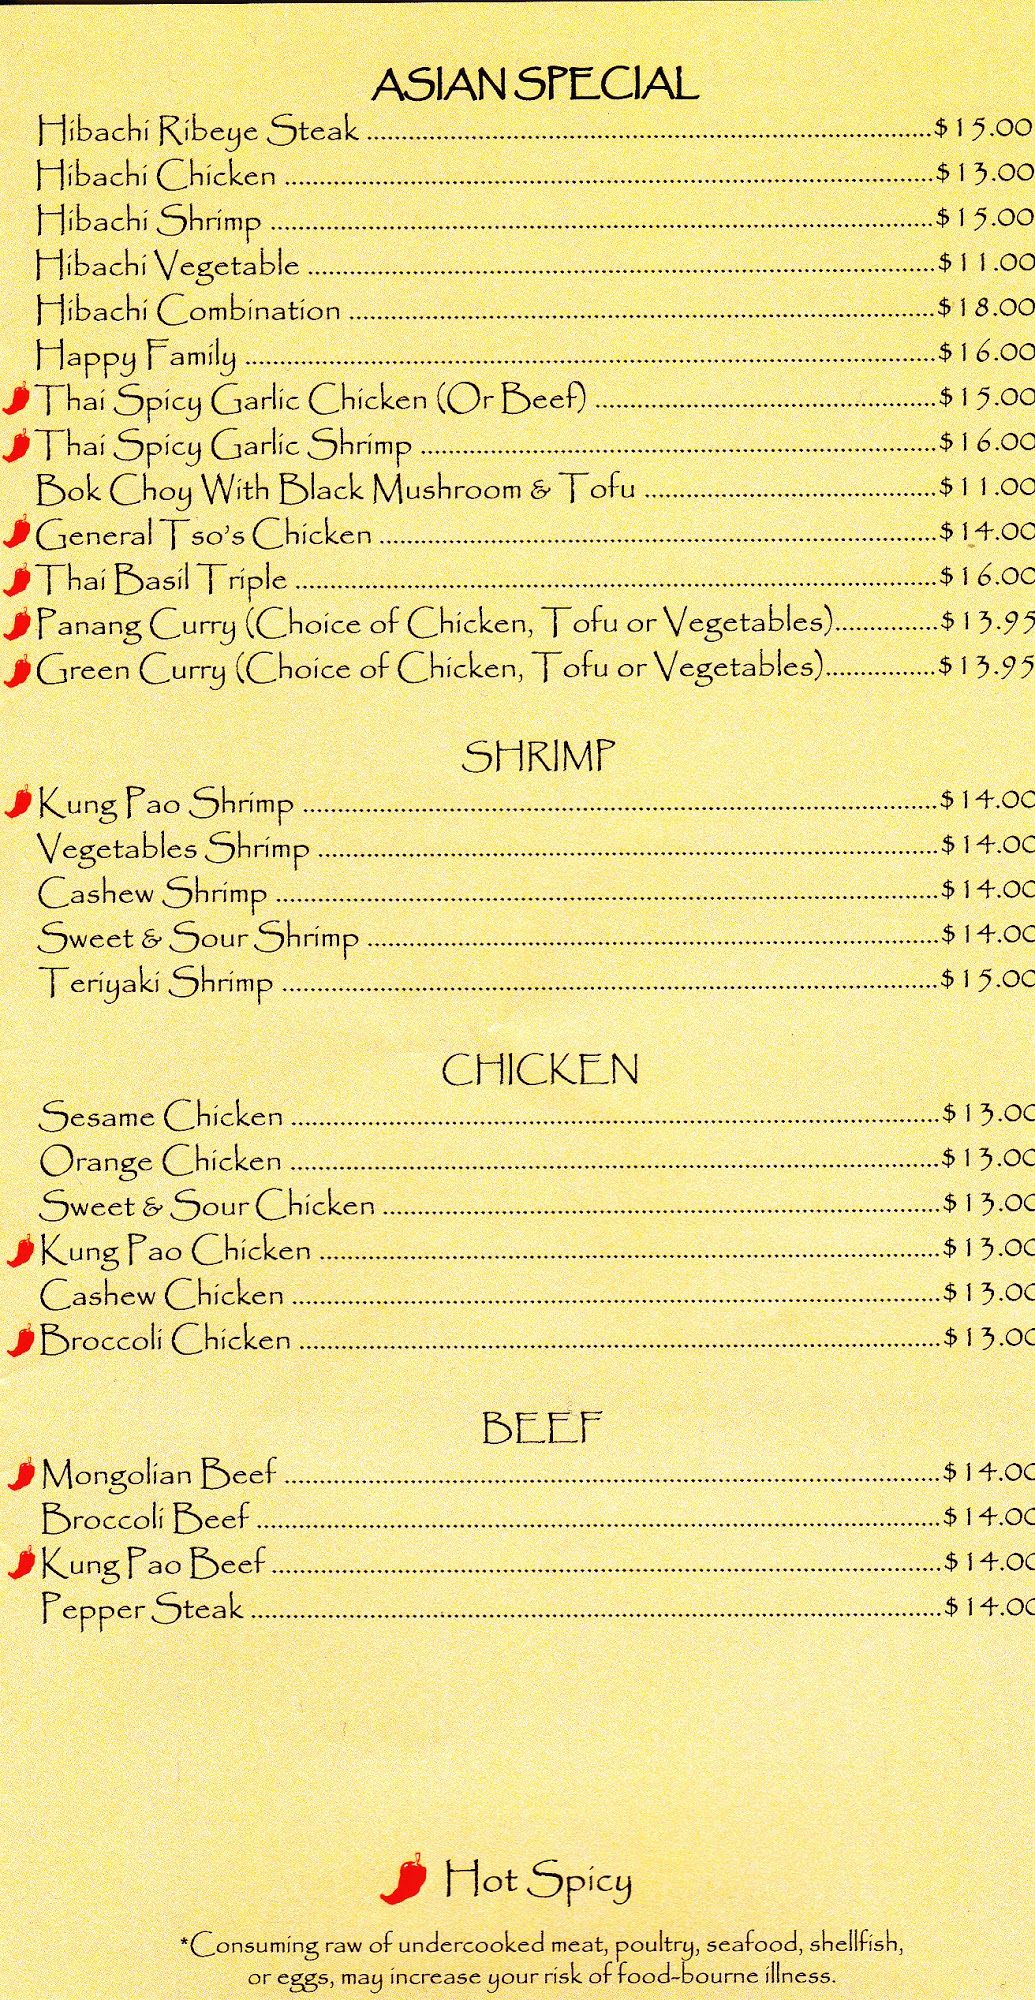 ASIAN SPECIAL
Hibachi Ribeye Steak ........ $15.00
Hibachi Chicken ........ $13.00
Hibachi Shrimp ........ $15.00
Hibachi Vegetable ........ $11.00
Hibachi Combination ........ $18.00
Happy Family ........ $16.00
Thai Spicy Garlic Chicken (Or Beef) ........ $15.00
Thai Spicy Garlic Shrimp ........ $16.00
Bok Choy With Black Mushroom & Tofu ........ $11.00
General Tso's Chicken ........ $14.00
Thai Basil Triple ........ $16.00
Panang Curry (Choice of Chicken, Tofu or Vegetables) ........ $13.95
Green Curry (Choice of Chicken, Tofu or Vegetables) ........ $13.95
SHRIMP
Kung Pao Shrimp ........ $14.00
Vegetables Shrimp ........ $14.00
Cashew Shrimp ........ $14.00
Sweet & Sour Shrimp ........ $14.00
Teriyaki Shrimp ........ $15.00
CHICKEN
Sesame Chicken ........ $13.00
Orange Chicken ........ $13.00
Sweet & Sour Chicken ........ $13.00
Kung Pao Chicken ........ $13.00
Cashew Chicken ........ $13.00
Broccoli Chicken ........ $13.00
BEEF
Mongolian Beef ........ $14.00
Broccoli Beef ........ $14.00
Kung Pao Beef ........ $14.00
Pepper Steak ........ $14.00
Hot Spicy
*Consuming raw of undercooked meat, poultry, seafood, shellfish,
or eggs, may increase your risk of food-bourne illness.